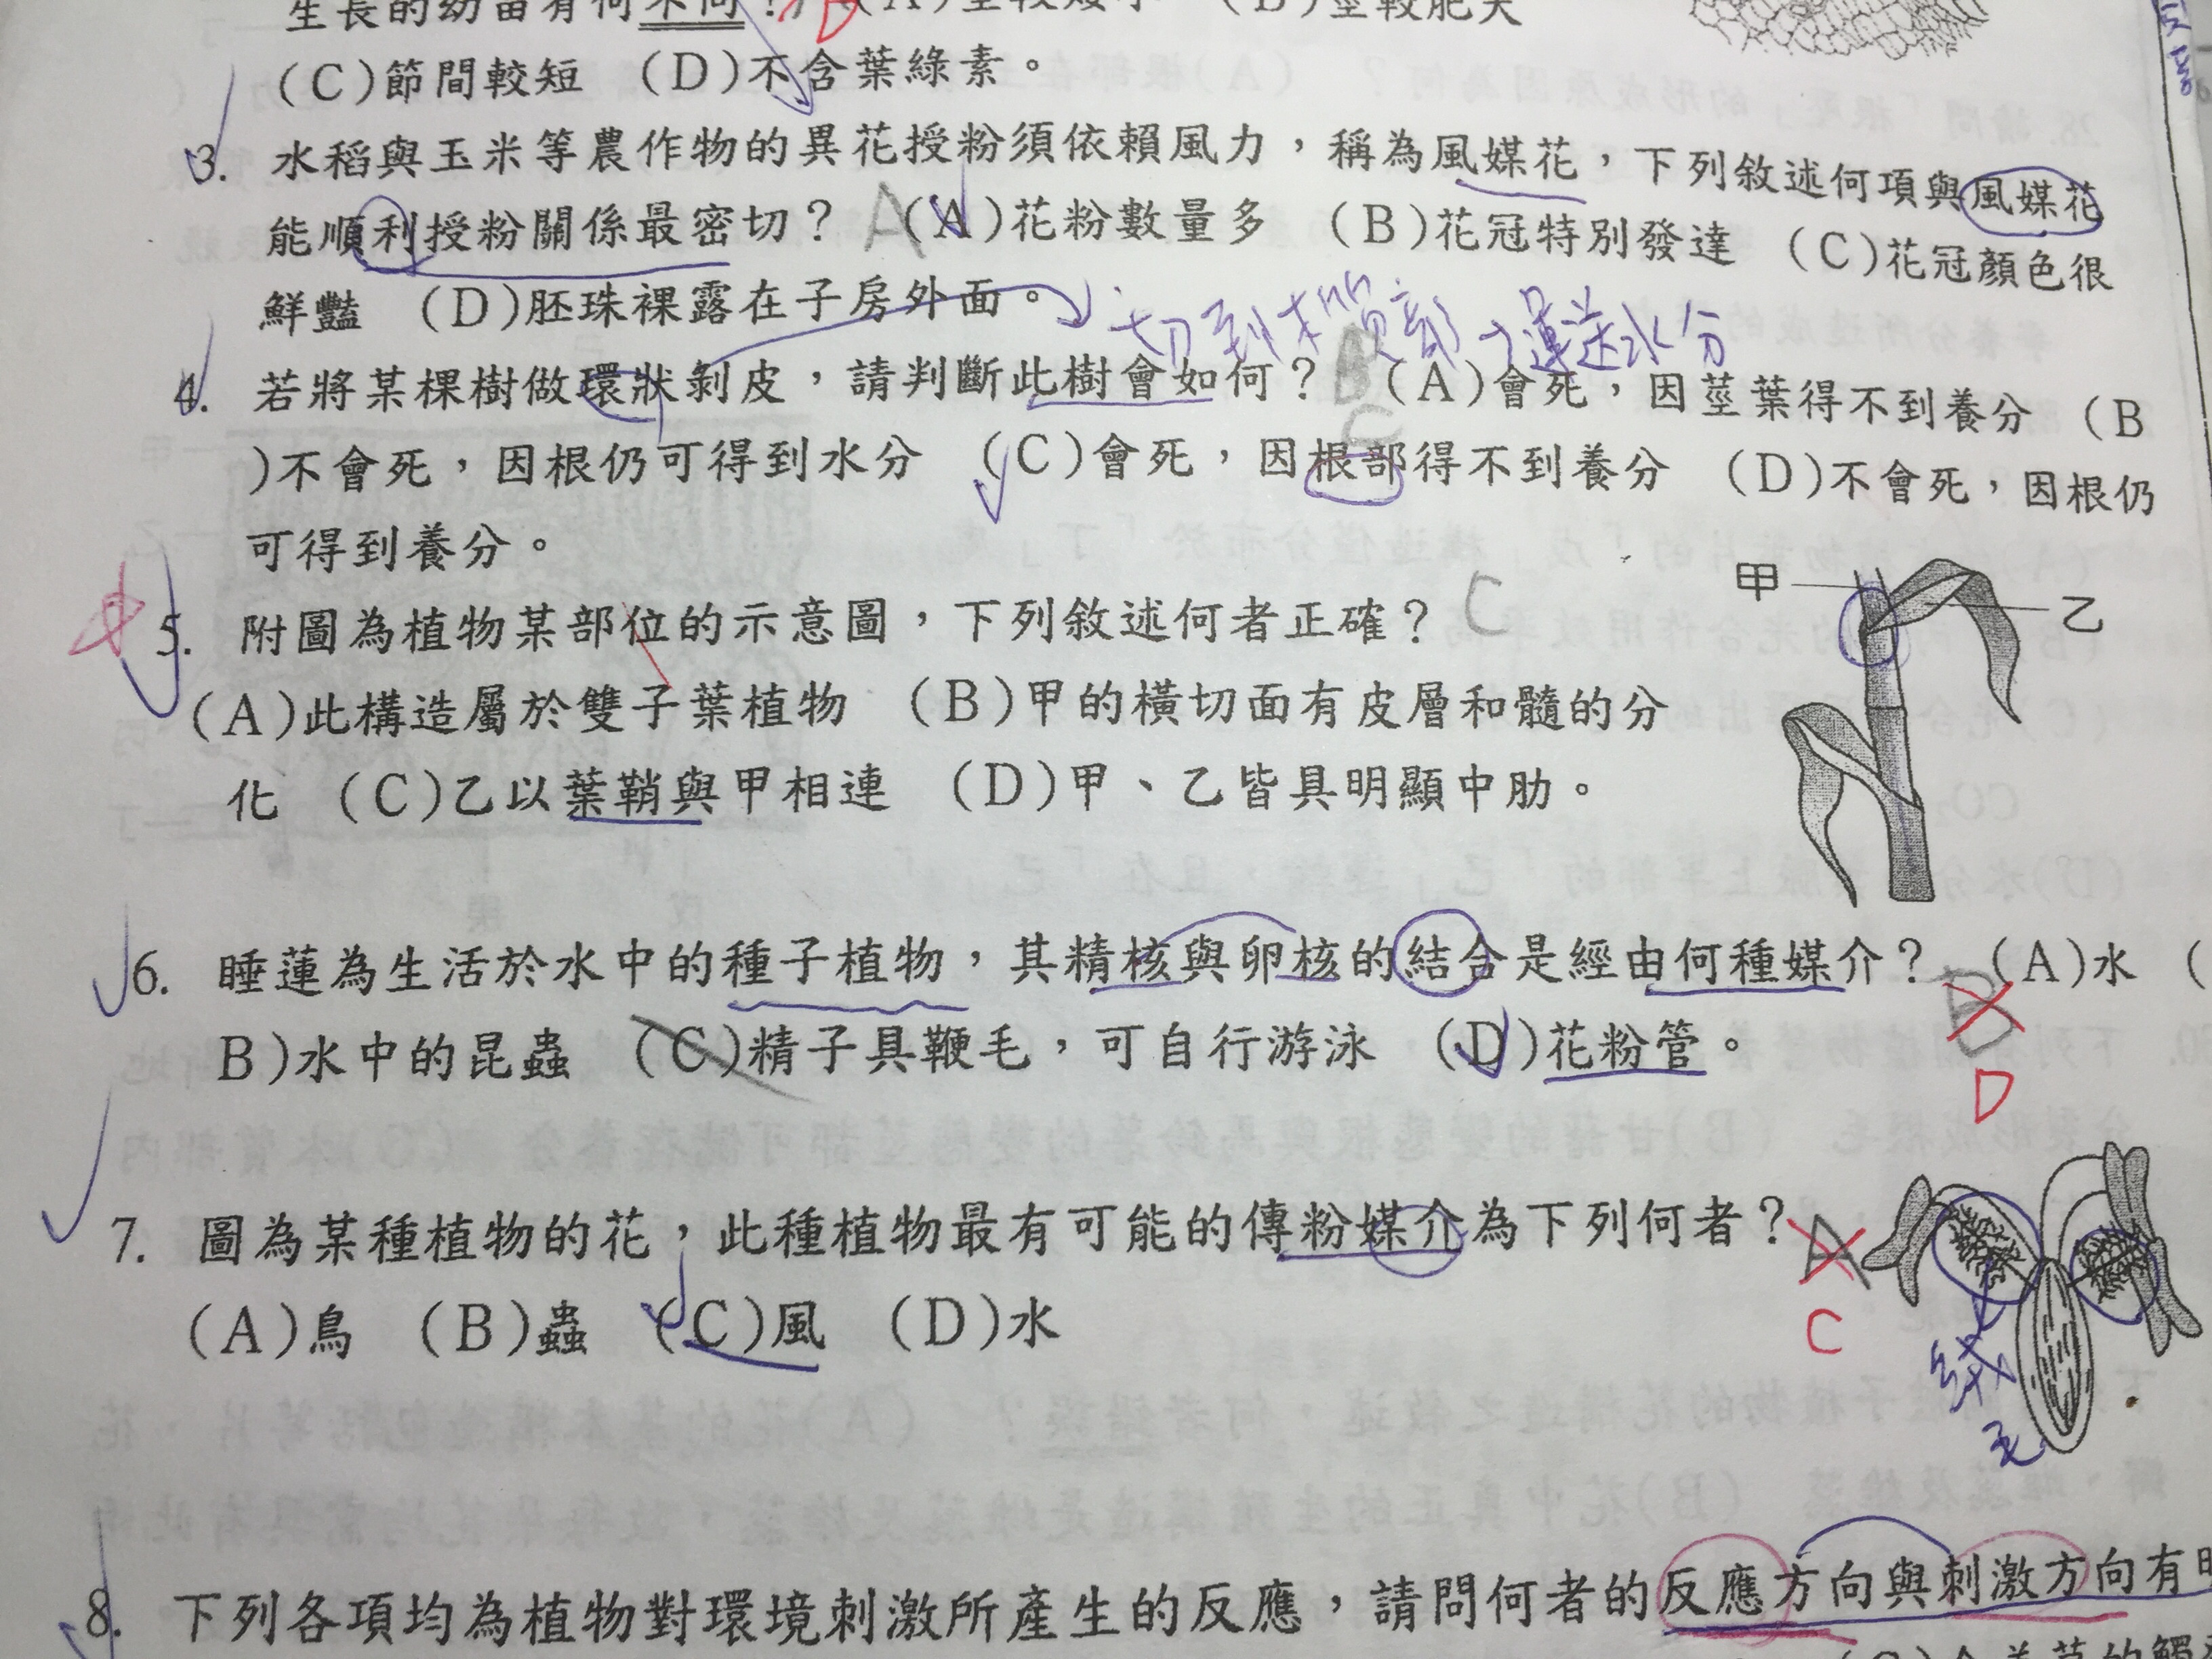 生長的幼苗有何不同？ D (A)莖較矮小 (B)莖較肥大
(C)節間較短 (D)不含葉綠素。
3. 水稻與玉米等農作物的異花授粉須依賴風力，稱為風媒花，下列敘述何項與風媒花
能順利授粉關係最密切？ A (A)花粉數量多 (B)花冠特別發達 (C)花冠顏色很
鮮豔 (D)胚珠裸露在子房外面。
切到木質部→運送水分
4. 若將某棵樹做環狀剝皮，請判斷此樹會如何？ C (A)會死，因莖葉得不到養分 (B
)不會死，因根仍可得到水分 (C)會死，因根部得不到養分 (D)不會死，因根仍
可得到養分。
甲
乙
5. 附圖為植物某部位的示意圖，下列敘述何者正確？ C
(A)此構造屬於雙子葉植物 (B)甲的橫切面有皮層和髓的分
化 (C)乙以葉鞘與甲相連 (D)甲、乙皆具明顯中肋。
6. 睡蓮為生活於水中的種子植物，其精核與卵核的結合是經由何種媒介？ B (A)水 (
B)水中的昆蟲 (C)精子具鞭毛，可自行游泳 (D)花粉管。
D
7. 圖為某種植物的花，此種植物最有可能的傳粉媒介為下列何者？ A
(A)鳥 (B)蟲 (C)風 (D)水
C
絨毛
8. 下列各項均為植物對環境刺激所產生的反應，請問何者的反應方向與刺激方向有